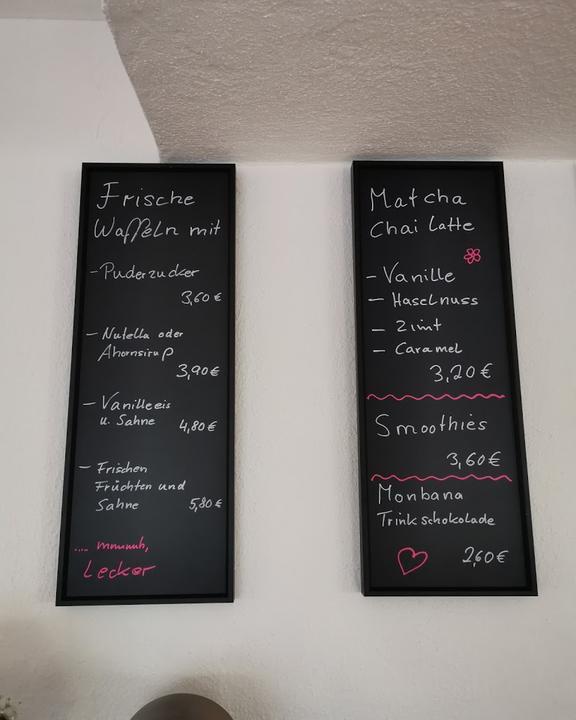 Frische
Waffeln mit
- Puderzucker
3,60 €
- Nutella oder
Ahornsirup
3,90 €
- Vanilleeis
u. Sahne
4,80 €
- Frischen
Früchten und
Sahne 5,80 €
.... mmmmh,
Lecker
Matcha
Chai Latte
- Vanille
- Haselnuss
- Zimt
- Caramel
3,20 €
Smoothies
3,60 €
Monbana
Trinkschokolade
2,60 €